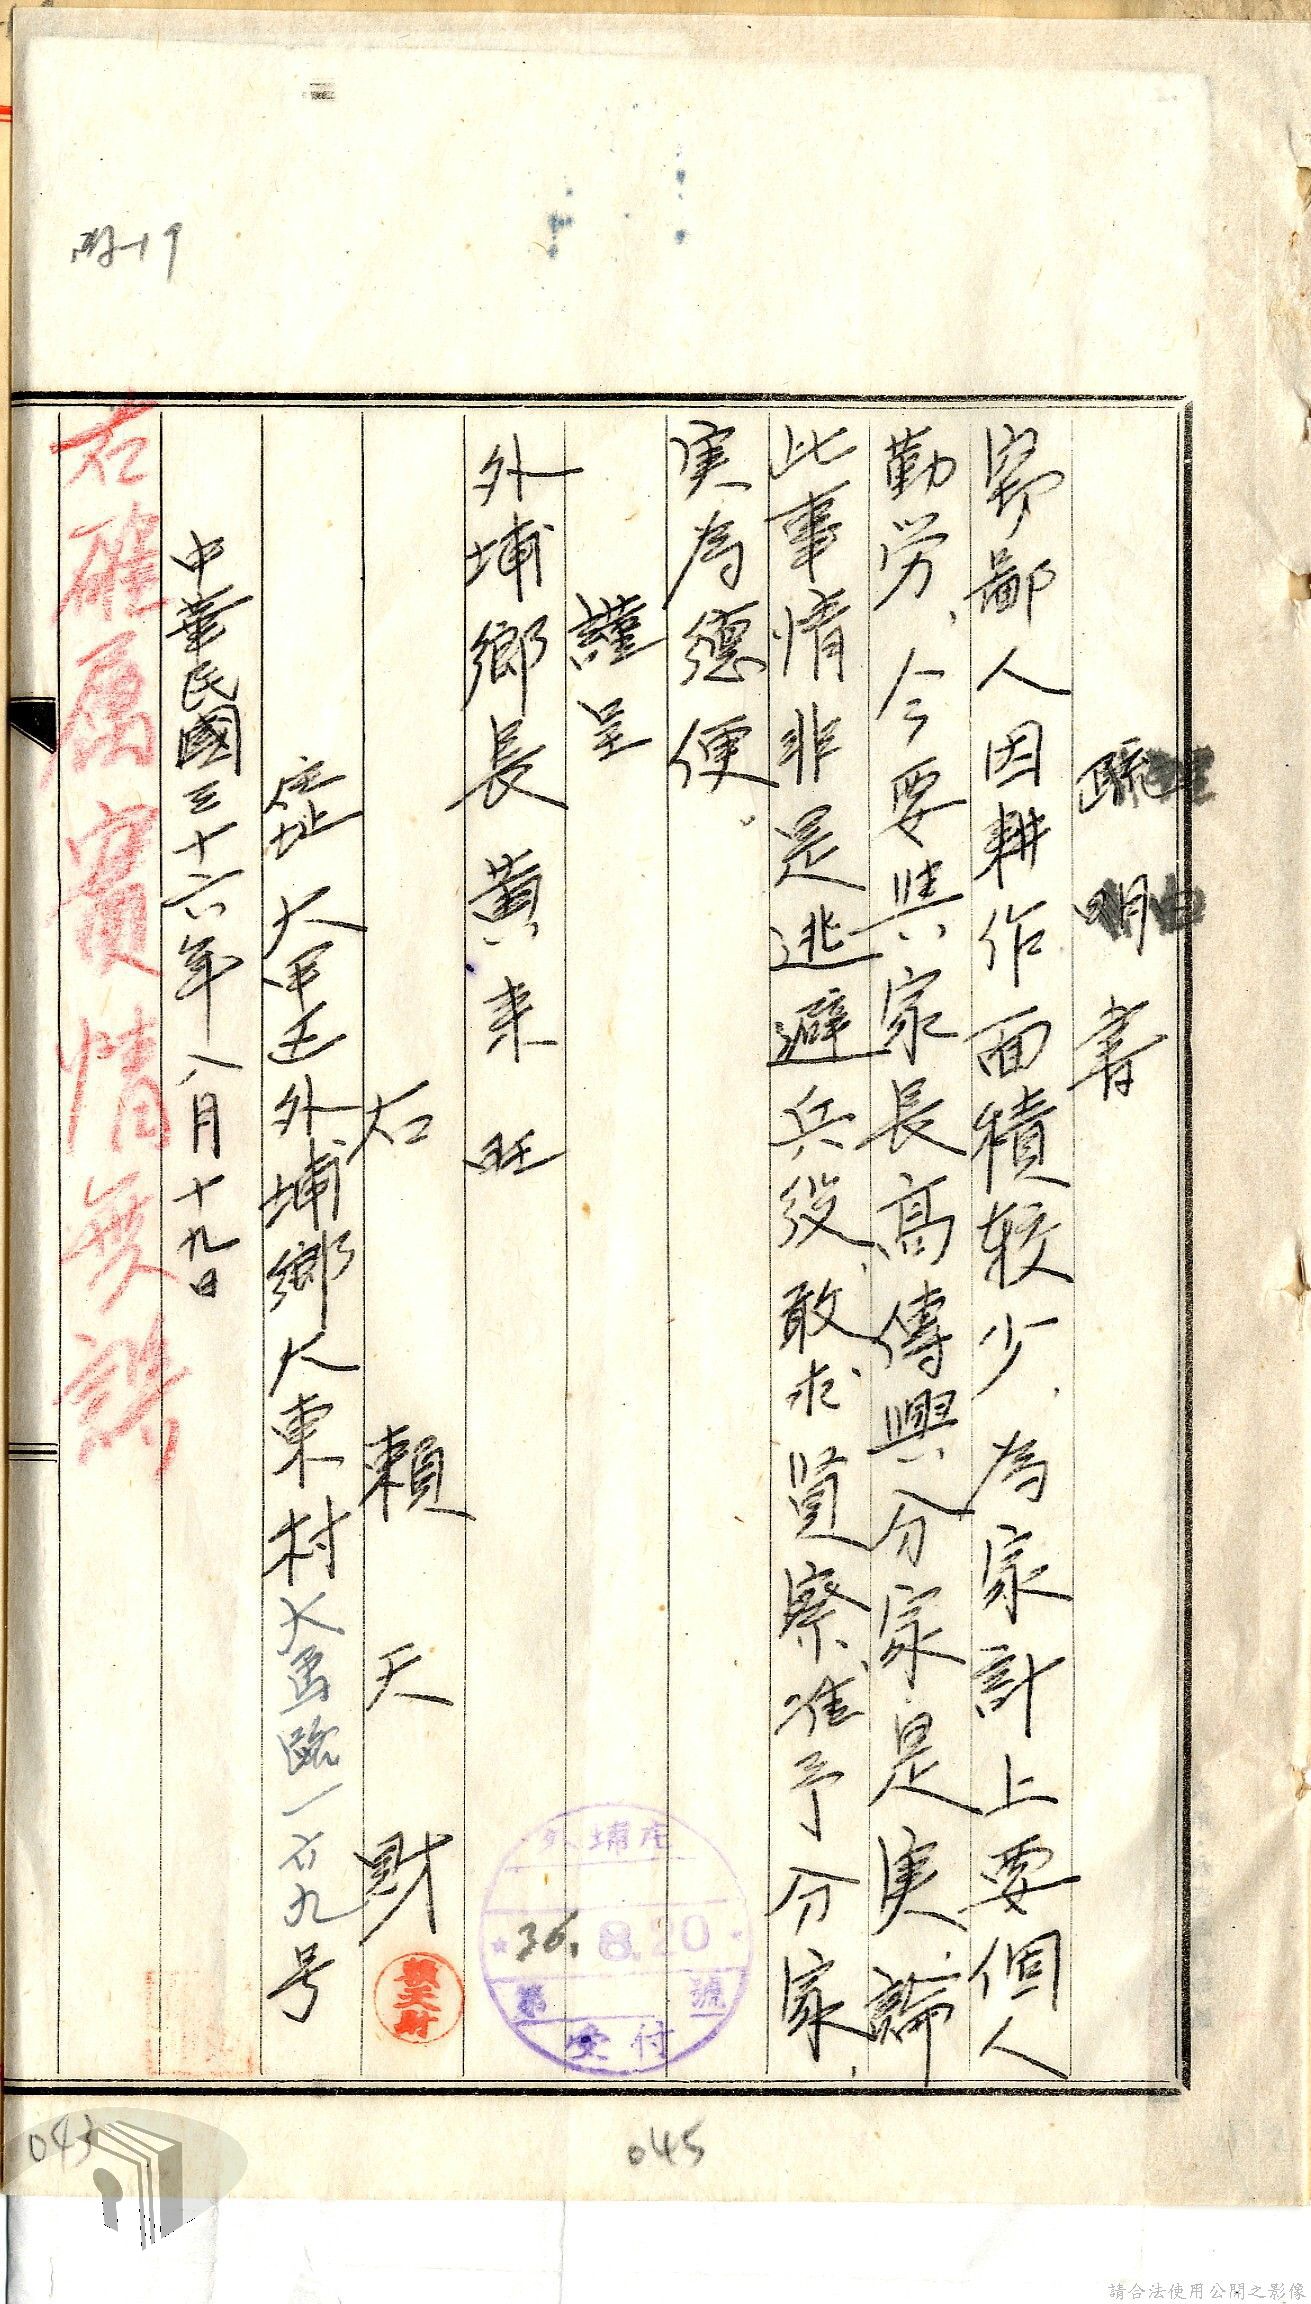 附19
疏明書
窃鄙人因耕作面積較少、為家計上要個人
勤労、今要與家長高傳興分家是実論
此事情非是逃避兵役敢求賢察准予分家、
実為德便。
謹呈
外埔鄉長 黃来旺
右 賴天財
賴天財
住址 大甲区外埔鄉大東村大馬臨一六九号
中華民國三十六年八月十九日
右確屬實情無誤
外埔庄
36. 8.20
第 號
受付
043
045
請合法使用公開之影像